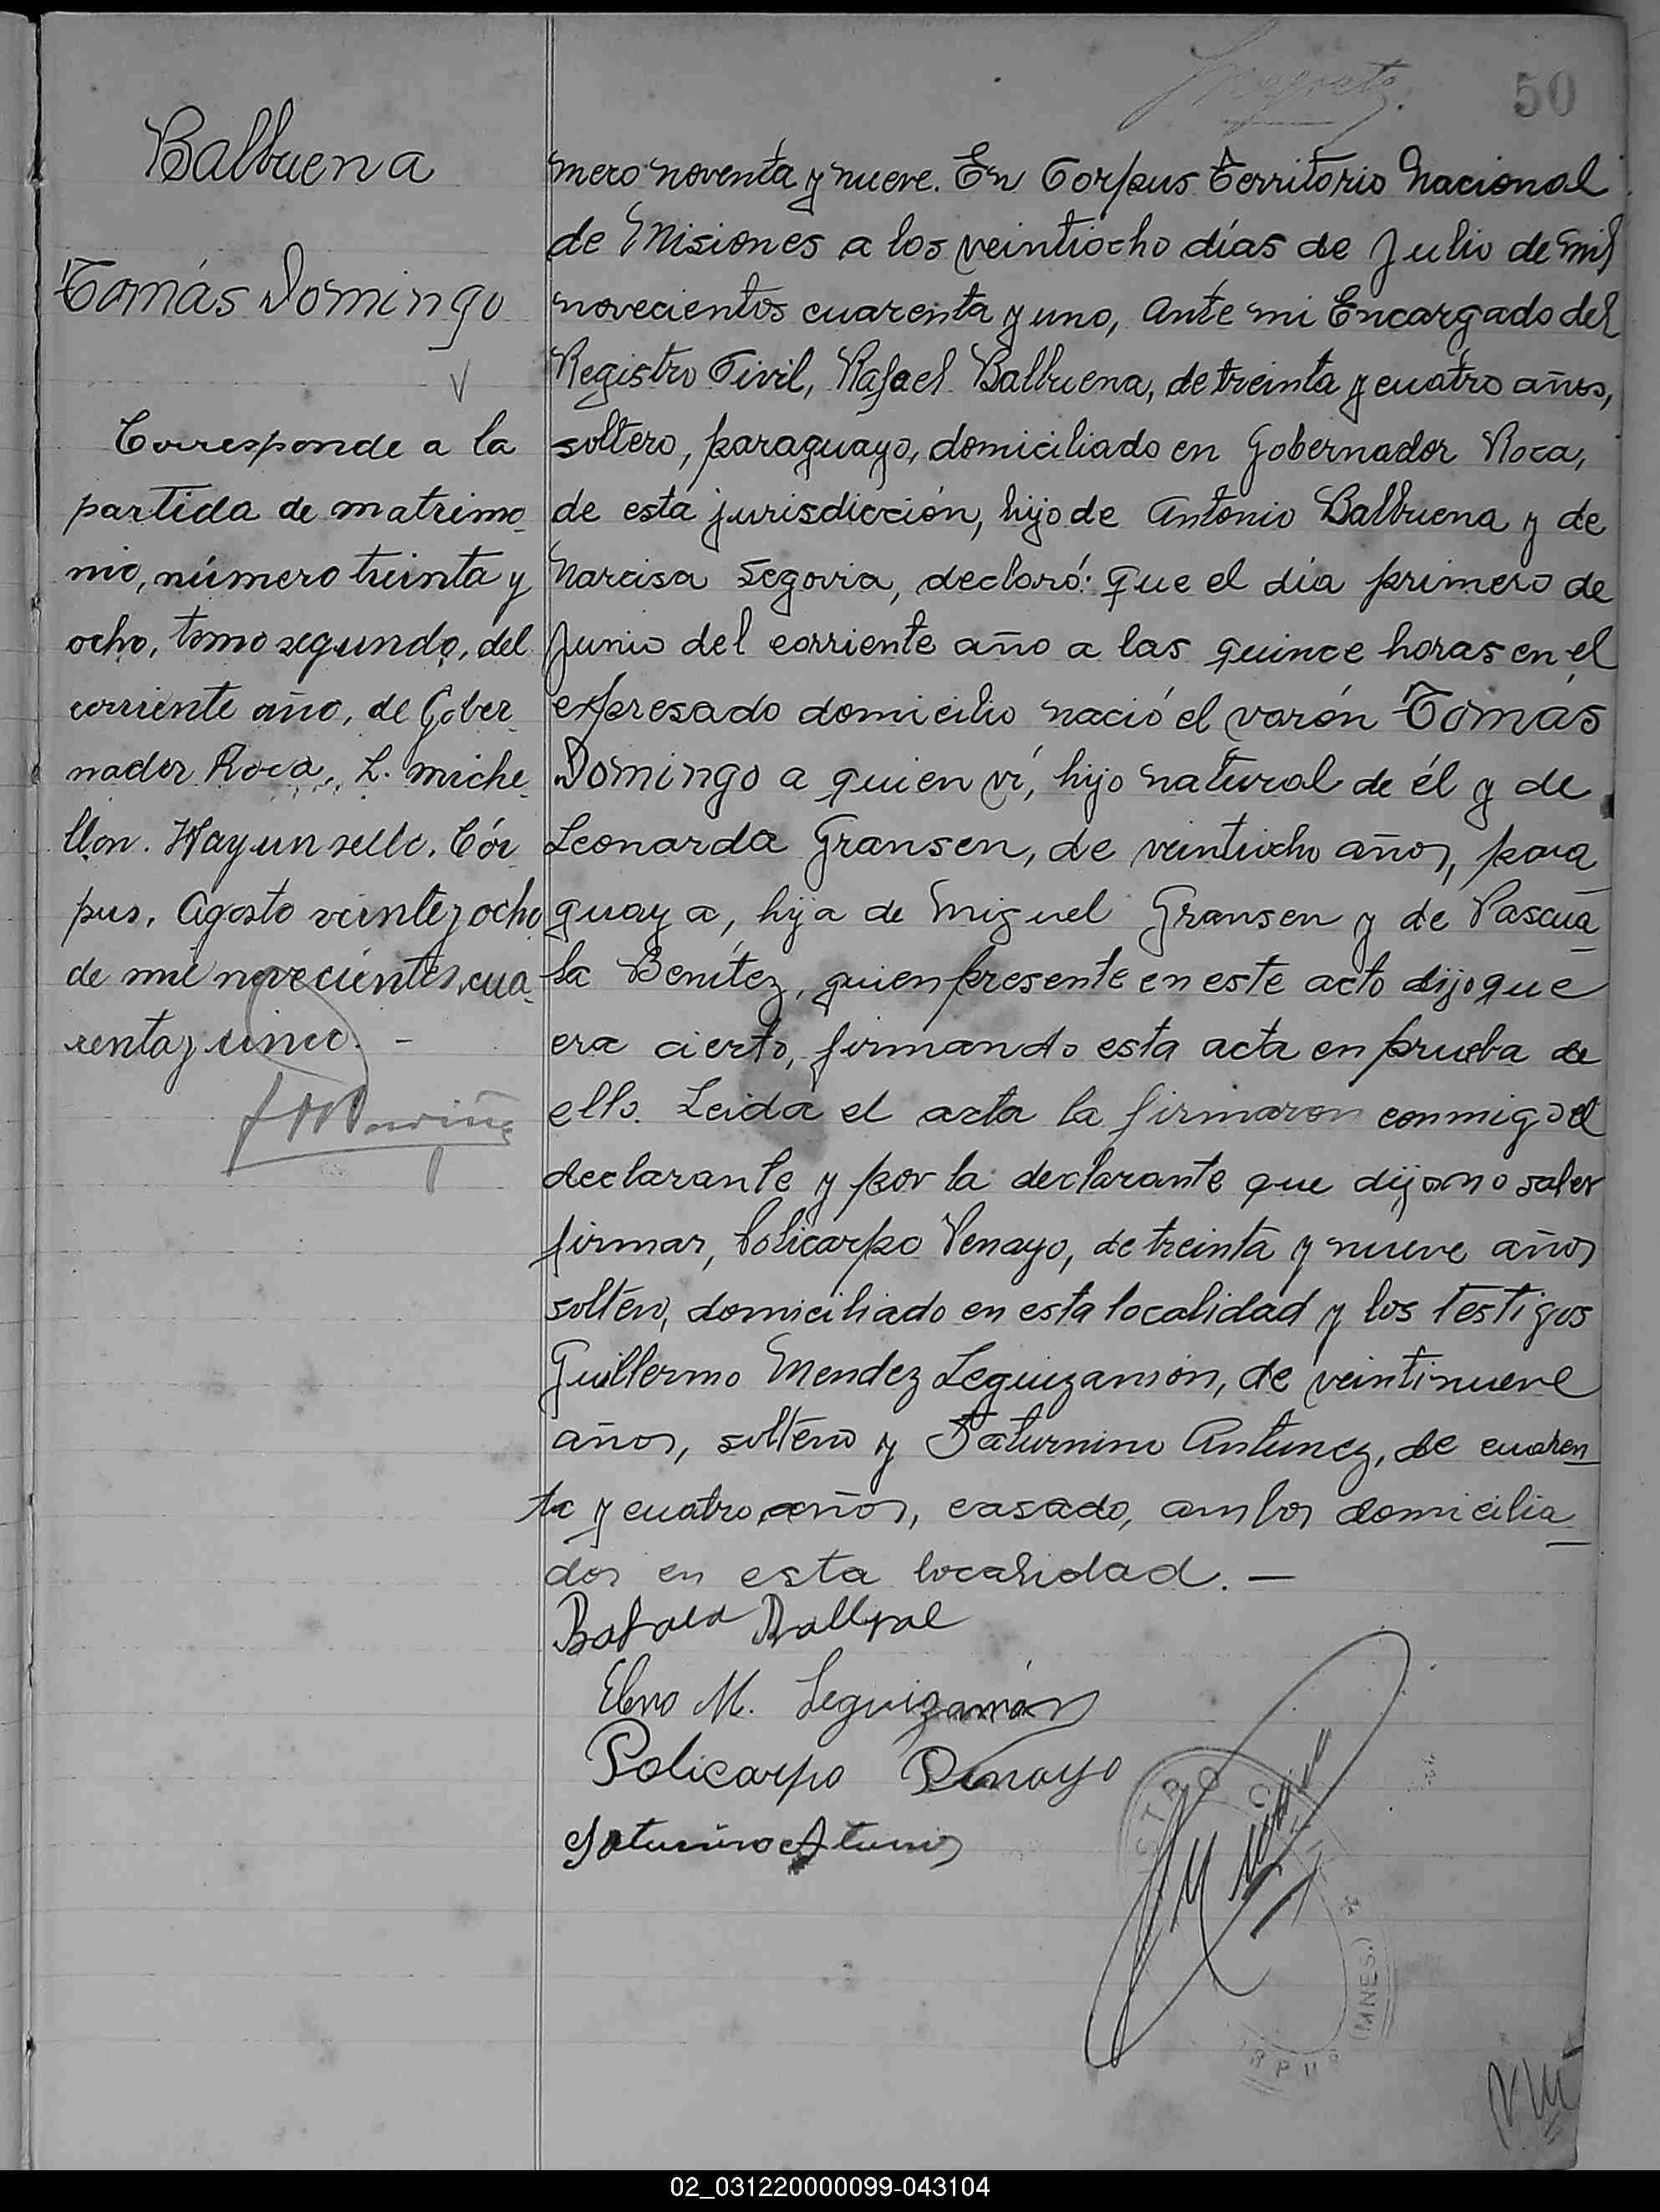 50
Balbuena
Tomás Domingo
Corresponde a la
partida de matrimo
nio, número treinta y
ocho, tomo segundo, del
corriente año, de Gober
nador Roca, L. Miche
llon. Hay un sello. Cór
pus, Agosto veinte y ocho
de mil novecientos cua
renta y uno. -
mero noventa y nueve. En Corpus Territorio Nacional
de Misiones a los veintiocho días de Julio de mil
novecientos cuarenta y uno, ante mi Encargado del
Registro Civil, Rafael Balbuena, de treinta y cuatro años,
soltero, paraguayo, domiciliado en Gobernador Roca,
de esta jurisdicción, hijo de Antonio Balbuena y de
Narcisa Segovia, declaró: que el día primero de
Junio del corriente año a las quince horas en el
expresado domicilio nació el varón Tomás
Domingo a quien ví, hijo natural de él y de
Leonarda Gransen, de veintiocho años, para
guaya, hija de Miguel Gransen y de Pascua
la Benítez, quien presente en este acto dijo que
era cierto, firmando esta acta en prueba de
ello. Leida el acta la firmaron conmigo el
declarante y por la declarante que dijo no saber
firmar, Policarpo Penayo, de treinta y nueve años
soltero, domiciliado en esta localidad y los testigos
Guillermo Mendez Leguizamón, de veintinueve
años, soltero y Saturnino Antunez, de cuaren
ta y cuatro años, casado, ambos domicilia
dos en esta localidad. —
M. Leguizamón
Policarpo Penayo
(MNES.)
02_031220000099-043104